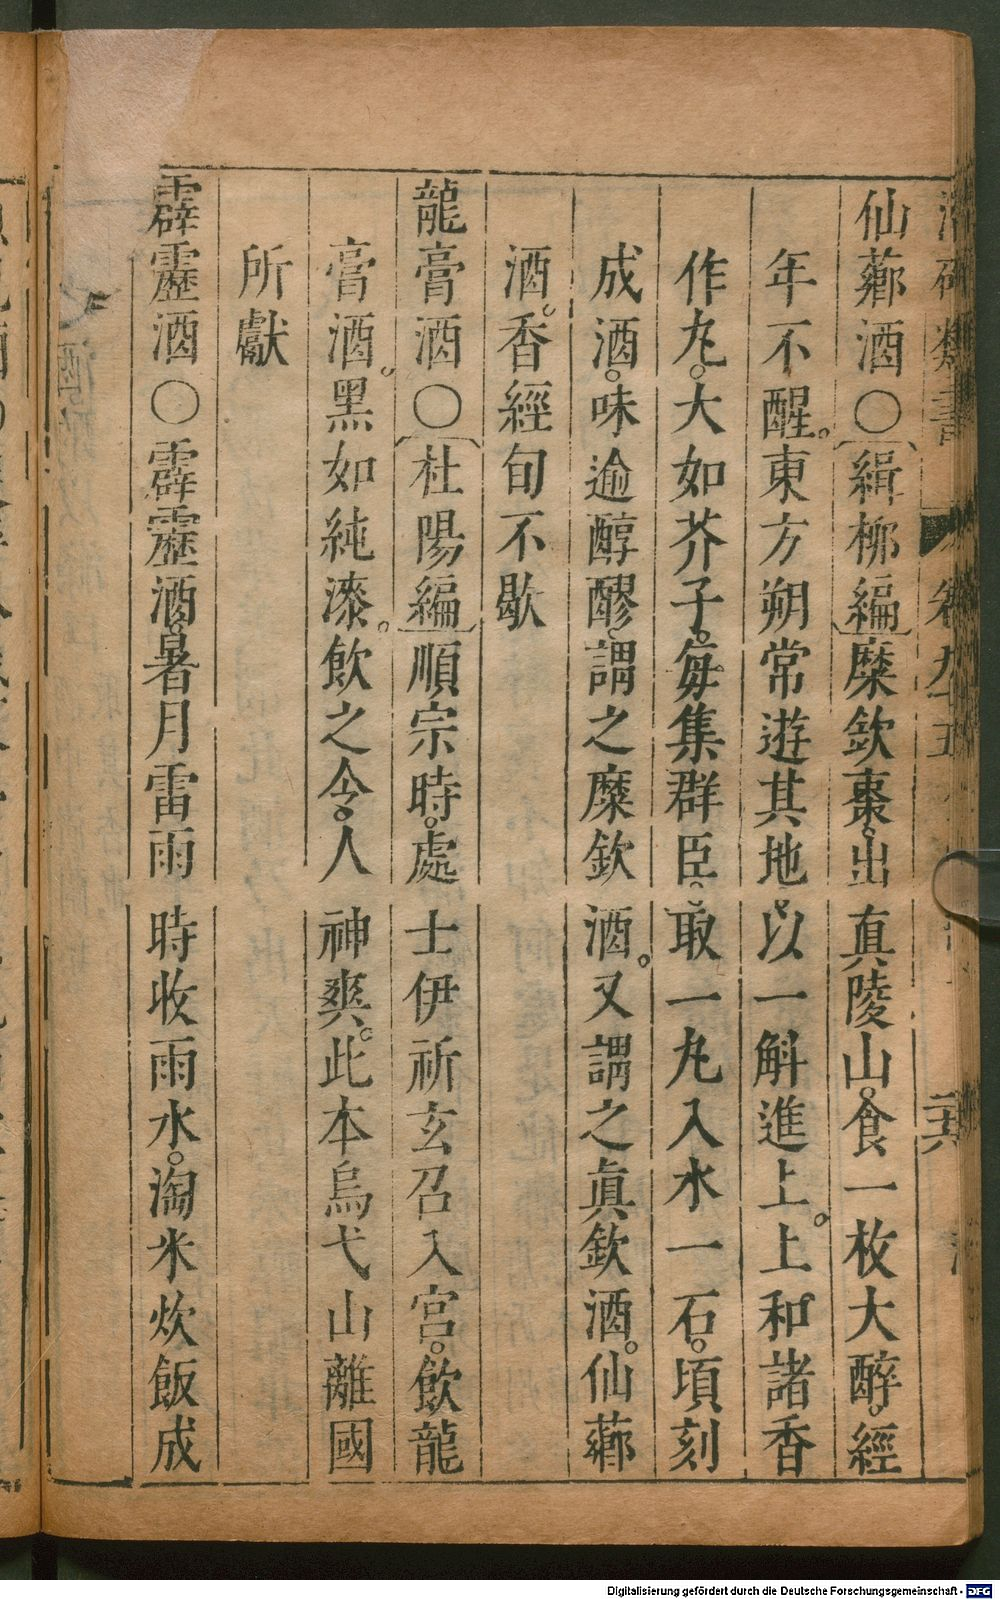 卷九十五
仙薌酒○〔緝柳編〕糜欽棗。出真陵山。食一枚大醉。經
年不醒。東方朔常遊其地。以一斛進上。上和諸香
作丸。大如芥子。每集群臣。取一丸入水一石。頃刻
成酒。味逾醇醪。謂之糜欽酒。又謂之真欽酒。仙薌
酒。香經旬不歇
龍膏酒○〔杜陽編〕順宗時。處士伊祈玄召入宮。飲龍
膏酒。黑如純漆。飲之令人神爽。此本烏弋山離國
所獻
霹靂酒○霹靂酒。暑月雷雨時收雨水。淘米炊飯成
Digitalisierung gefördert durch die Deutsche Forschungsgemeinschaft - DFG